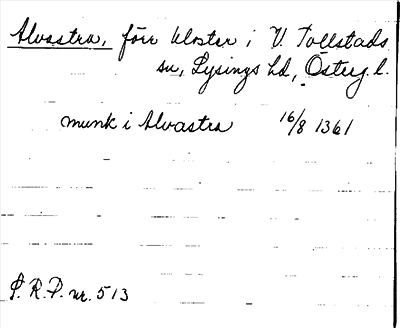 Alvastra, förr kloster i V. Tollstads
sn, Lysings hd, Österg. l.
munk i Alvastra 16/8 1361
S. R. P. nr. 513